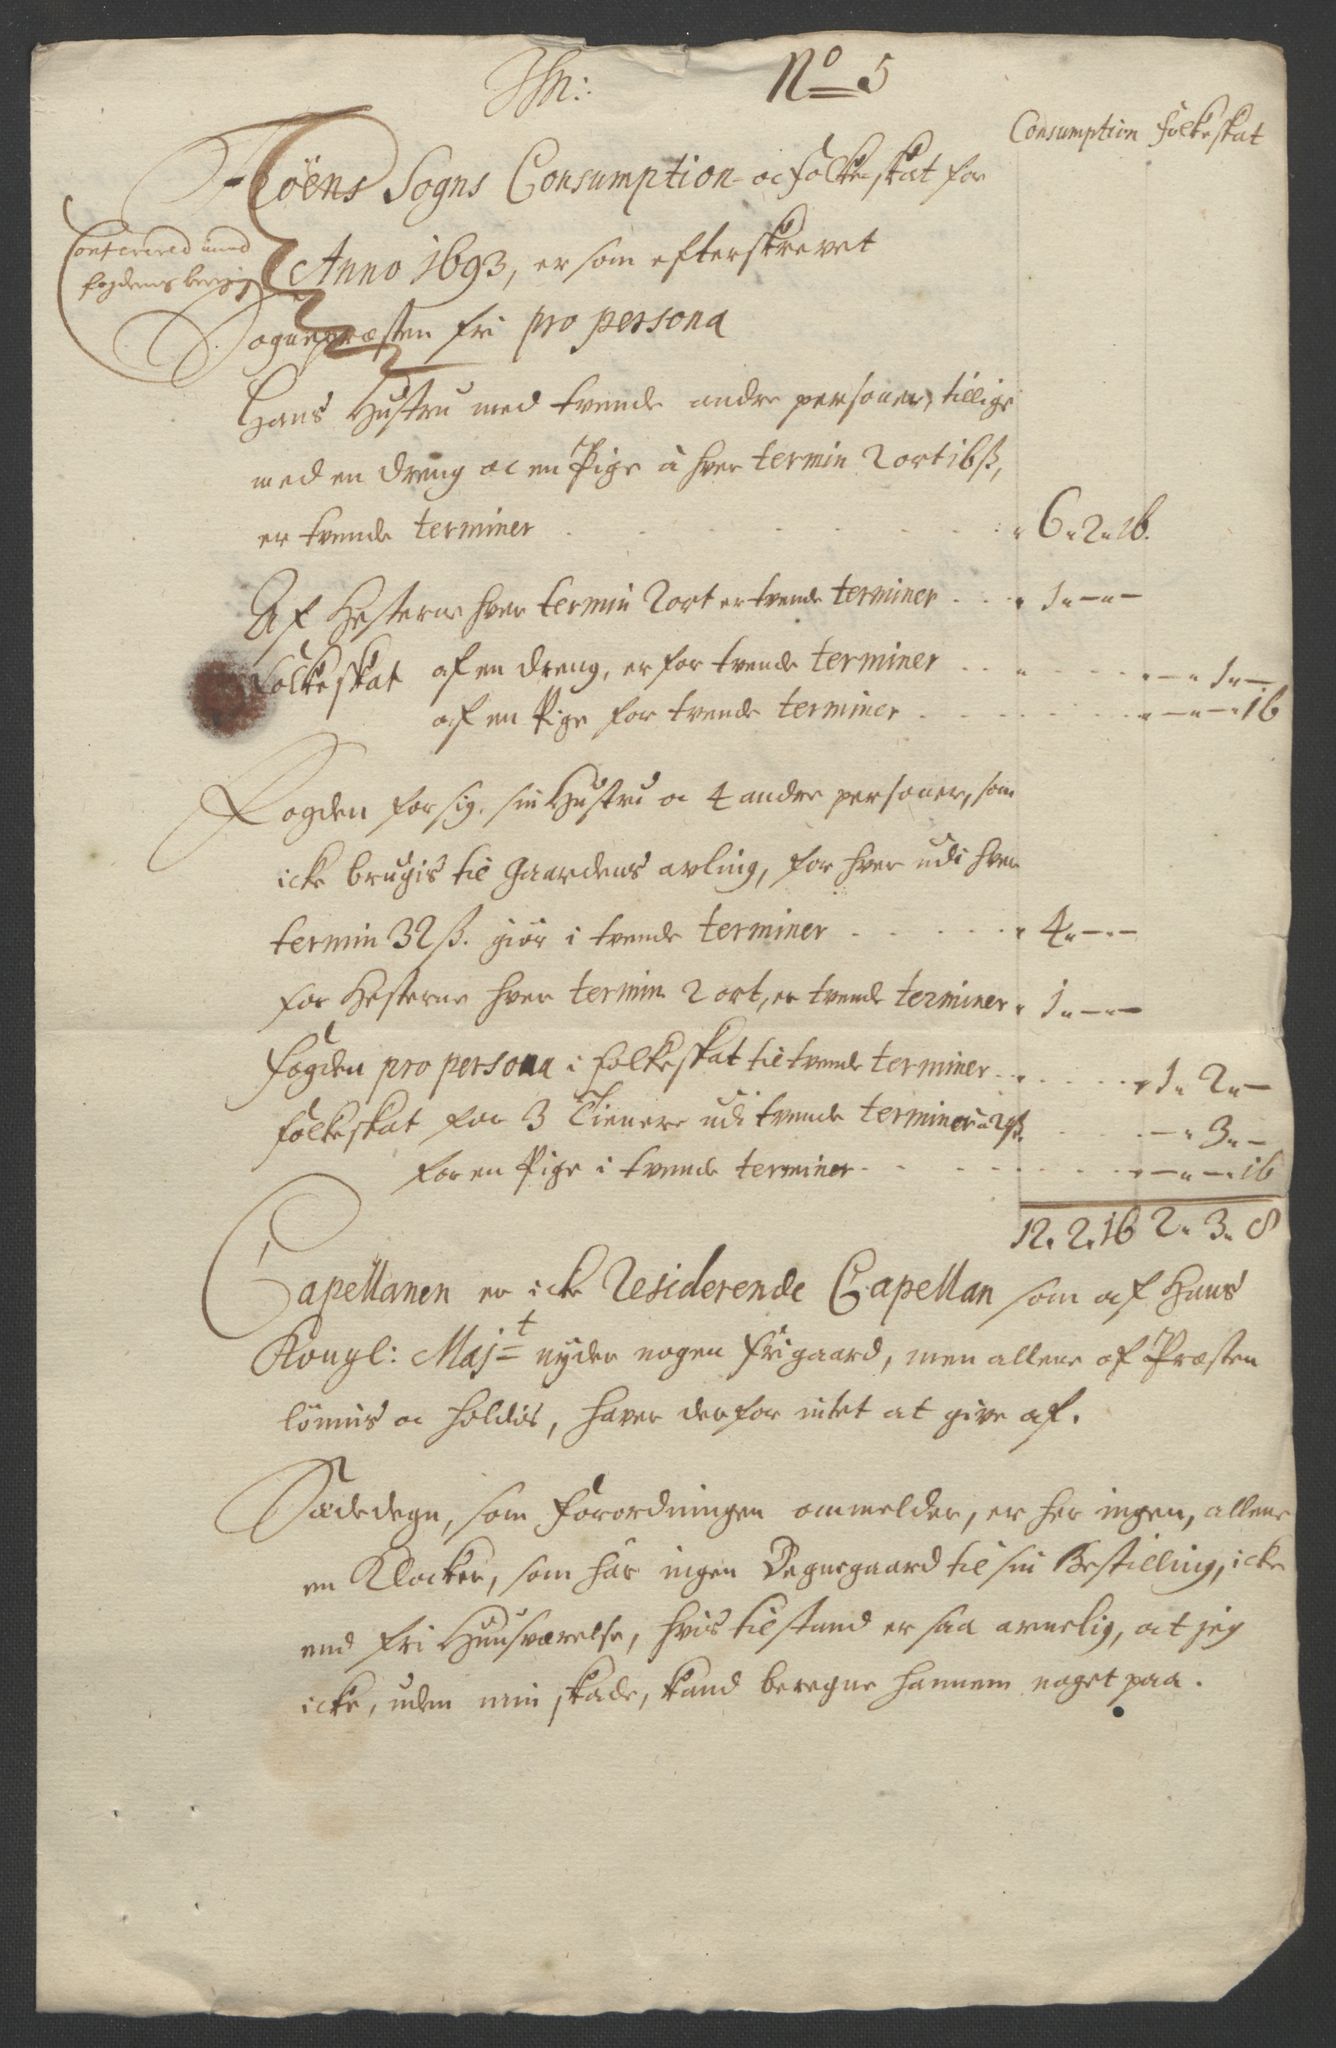 Ihn:
No 5
Consumption folkeskat
Fløens Sogns Consumption- oc folke-skat for
Anno 1693, er som efterskrevet
Confererid med
fogdens bereign
Sognepræsten fri pro persona
Hans Hustru med tvende andre personer, tillige
med en dreng oc en Pige à hver termin 2 ort 16 ß,
er tvende terminer 6. 2. 16.
Af Hesterne hver termin 2 ort er tvende terminer 1. – –
Folkeskat af en dreng, er for tvende terminer – 1. –
af en Pige for tvende terminer – – 16
Fogden for sig. sin Hustru oc 4 andre personer, som
icke brugis til Gaardens avling, for hver udi hver
termin 32 ß. giör i tvende terminer 4. – –
for Hesterne hver termin 2 ort, er tvende terminer 1. – –
fogden pro persona i folkeskat til tvende terminer 1. 2. –
folkeskat for 3 Tienere udi tvende terminer à 24 ß. – 3. –
for en Pige i tvende terminer – – 16
12. 2. 16 2. 3. 8
Capellanen er icke Residerende Capellan som af Hans
Kongl: Majt nyder nogen frigaard, men allene af Præsten
lönnis oc holdis, haver derfor intet at give af.
Sædedegn, som Forordningen ommelder, er her ingen, allene
en Klocker, som har ingen Degnegaard til sin Bestilling, icke
end fri Huusværelse, hvis tilstand er saa armelig, at jeg
icke, uden min skade, kand beregne hannem noget paa.